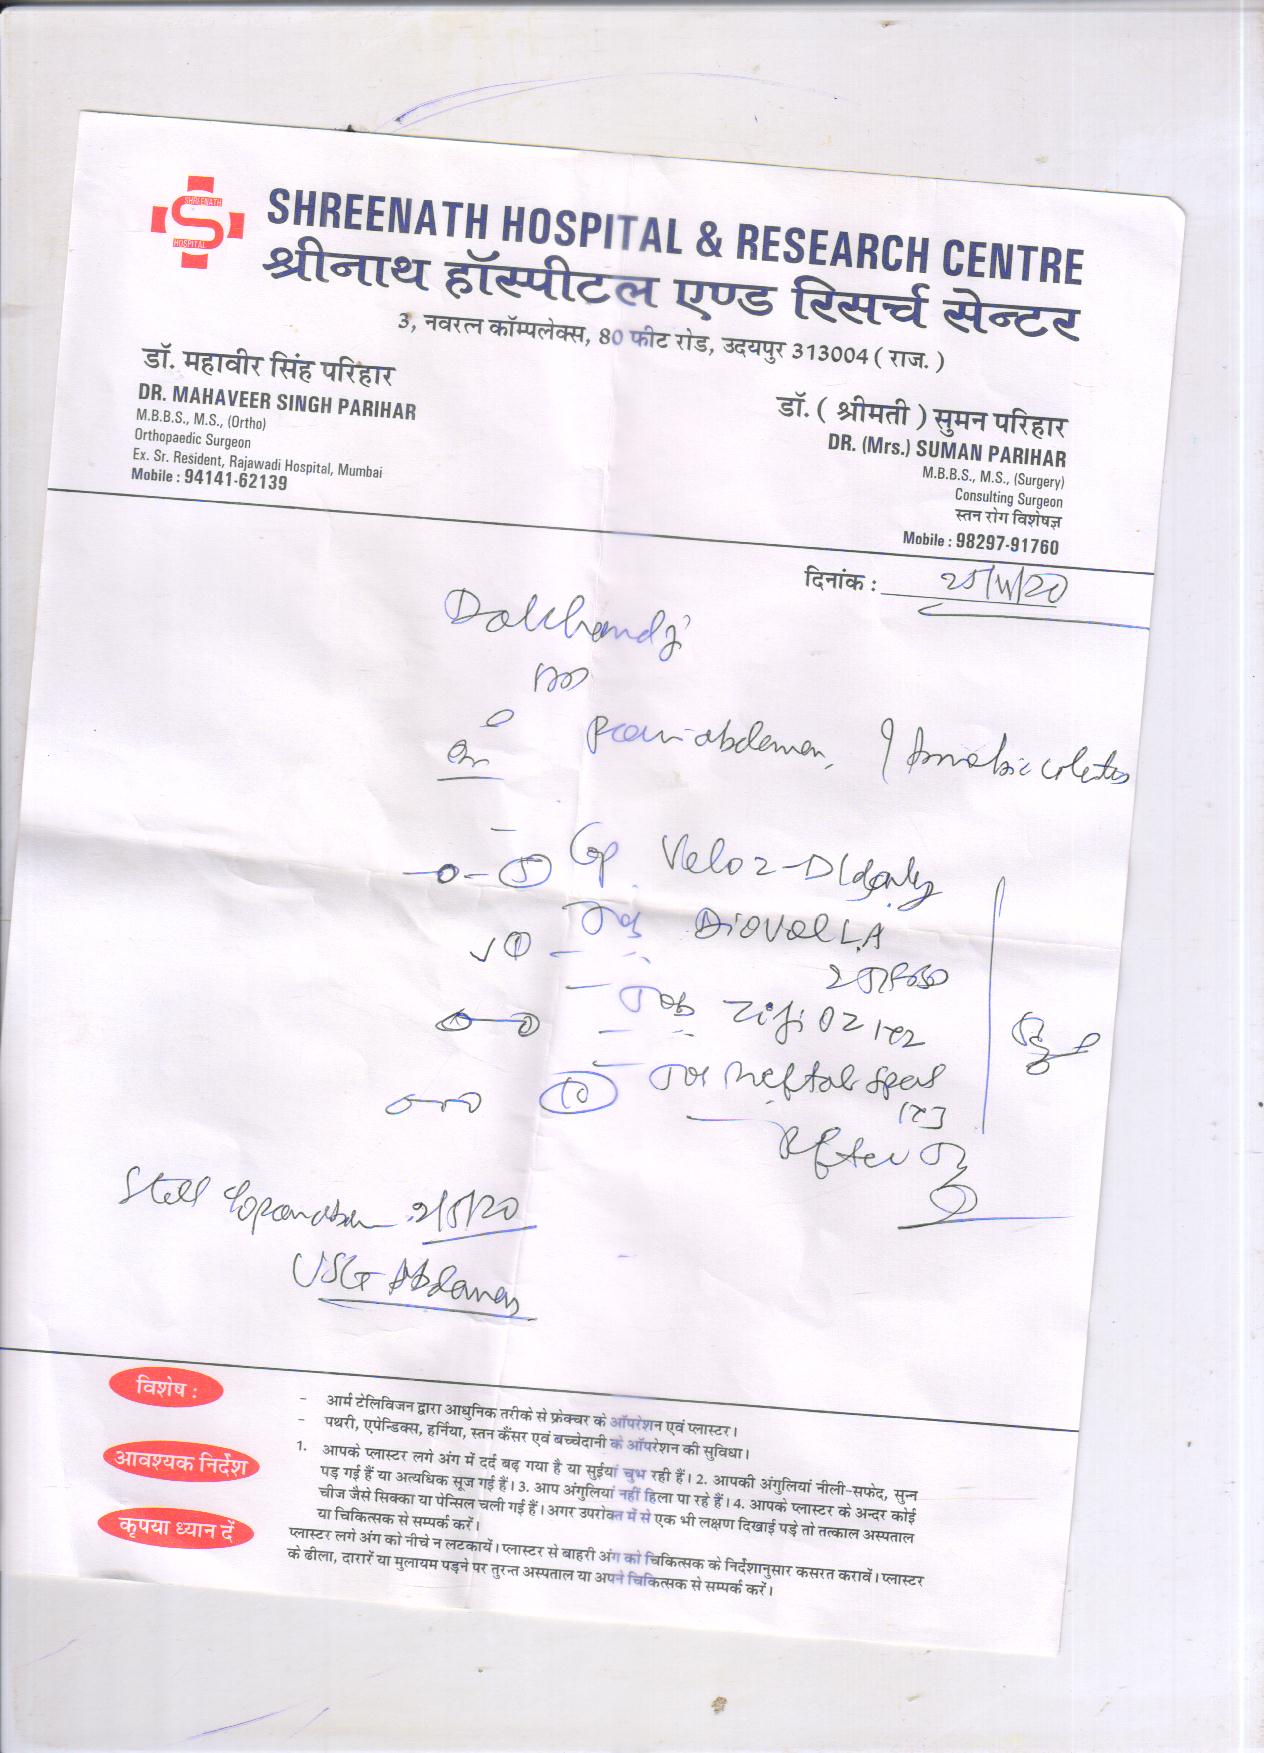 SHREENATH
HOSPITAL
SHREENATH HOSPITAL & RESEARCH CENTRE
श्रीनाथ हॉस्पीटल एण्ड रिसर्च सेन्टर
3, नवरत्न कॉम्पलेक्स, 80 फीट रोड, उदयपुर 313004 ( राज. )
डॉ. महावीर सिंह परिहार
DR. MAHAVEER SINGH PARIHAR
M.B.B.S., M.S., (Ortho)
Orthopaedic Surgeon
Ex. Sr. Resident, Rajawadi Hospital, Mumbai
Mobile : 94141-62139
डॉ. ( श्रीमती ) सुमन परिहार
DR. (Mrs.) SUMAN PARIHAR
M.B.B.S., M.S., (Surgery)
Consulting Surgeon
स्तन रोग विशेषज्ञ
Mobile : 98297-91760
दिनांक :
Dalchandji
Pain abdomen,
Cap Veloz-D
Tab
Tab Zifi O2
Meftal Spas
After
Still
USG Abdomen
विशेष :
- आर्म टेलिविजन द्वारा आधुनिक तरीके से फ्रेक्चर के ऑपरेशन एवं प्लास्टर।
- पथरी, एपेन्डिक्स, हर्निया, स्तन कैंसर एवं बच्चेदानी के ऑपरेशन की सुविधा।
आवश्यक निर्देश
1. आपके प्लास्टर लगे अंग में दर्द बढ़ गया है या सुईयां चुभ रही हैं। 2. आपकी अंगुलियां नीली-सफेद, सुन्न
पड़ गई हैं या अत्यधिक सूज गई हैं। 3. आप अंगुलियां नहीं हिला पा रहे हैं। 4. आपके प्लास्टर के अन्दर कोई
चीज जैसे सिक्का या पेन्सिल चली गई हैं। अगर उपरोक्त में से एक भी लक्षण दिखाई पड़े तो तत्काल अस्पताल
या चिकित्सक से सम्पर्क करें।
कृपया ध्यान दें
प्लास्टर लगे अंग को नीचे न लटकायें। प्लास्टर से बाहरी अंग को चिकित्सक के निर्देशानुसार कसरत करावें। प्लास्टर
के ढीला, दारारें या मुलायम पड़ने पर तुरन्त अस्पताल या अपने चिकित्सक से सम्पर्क करें।